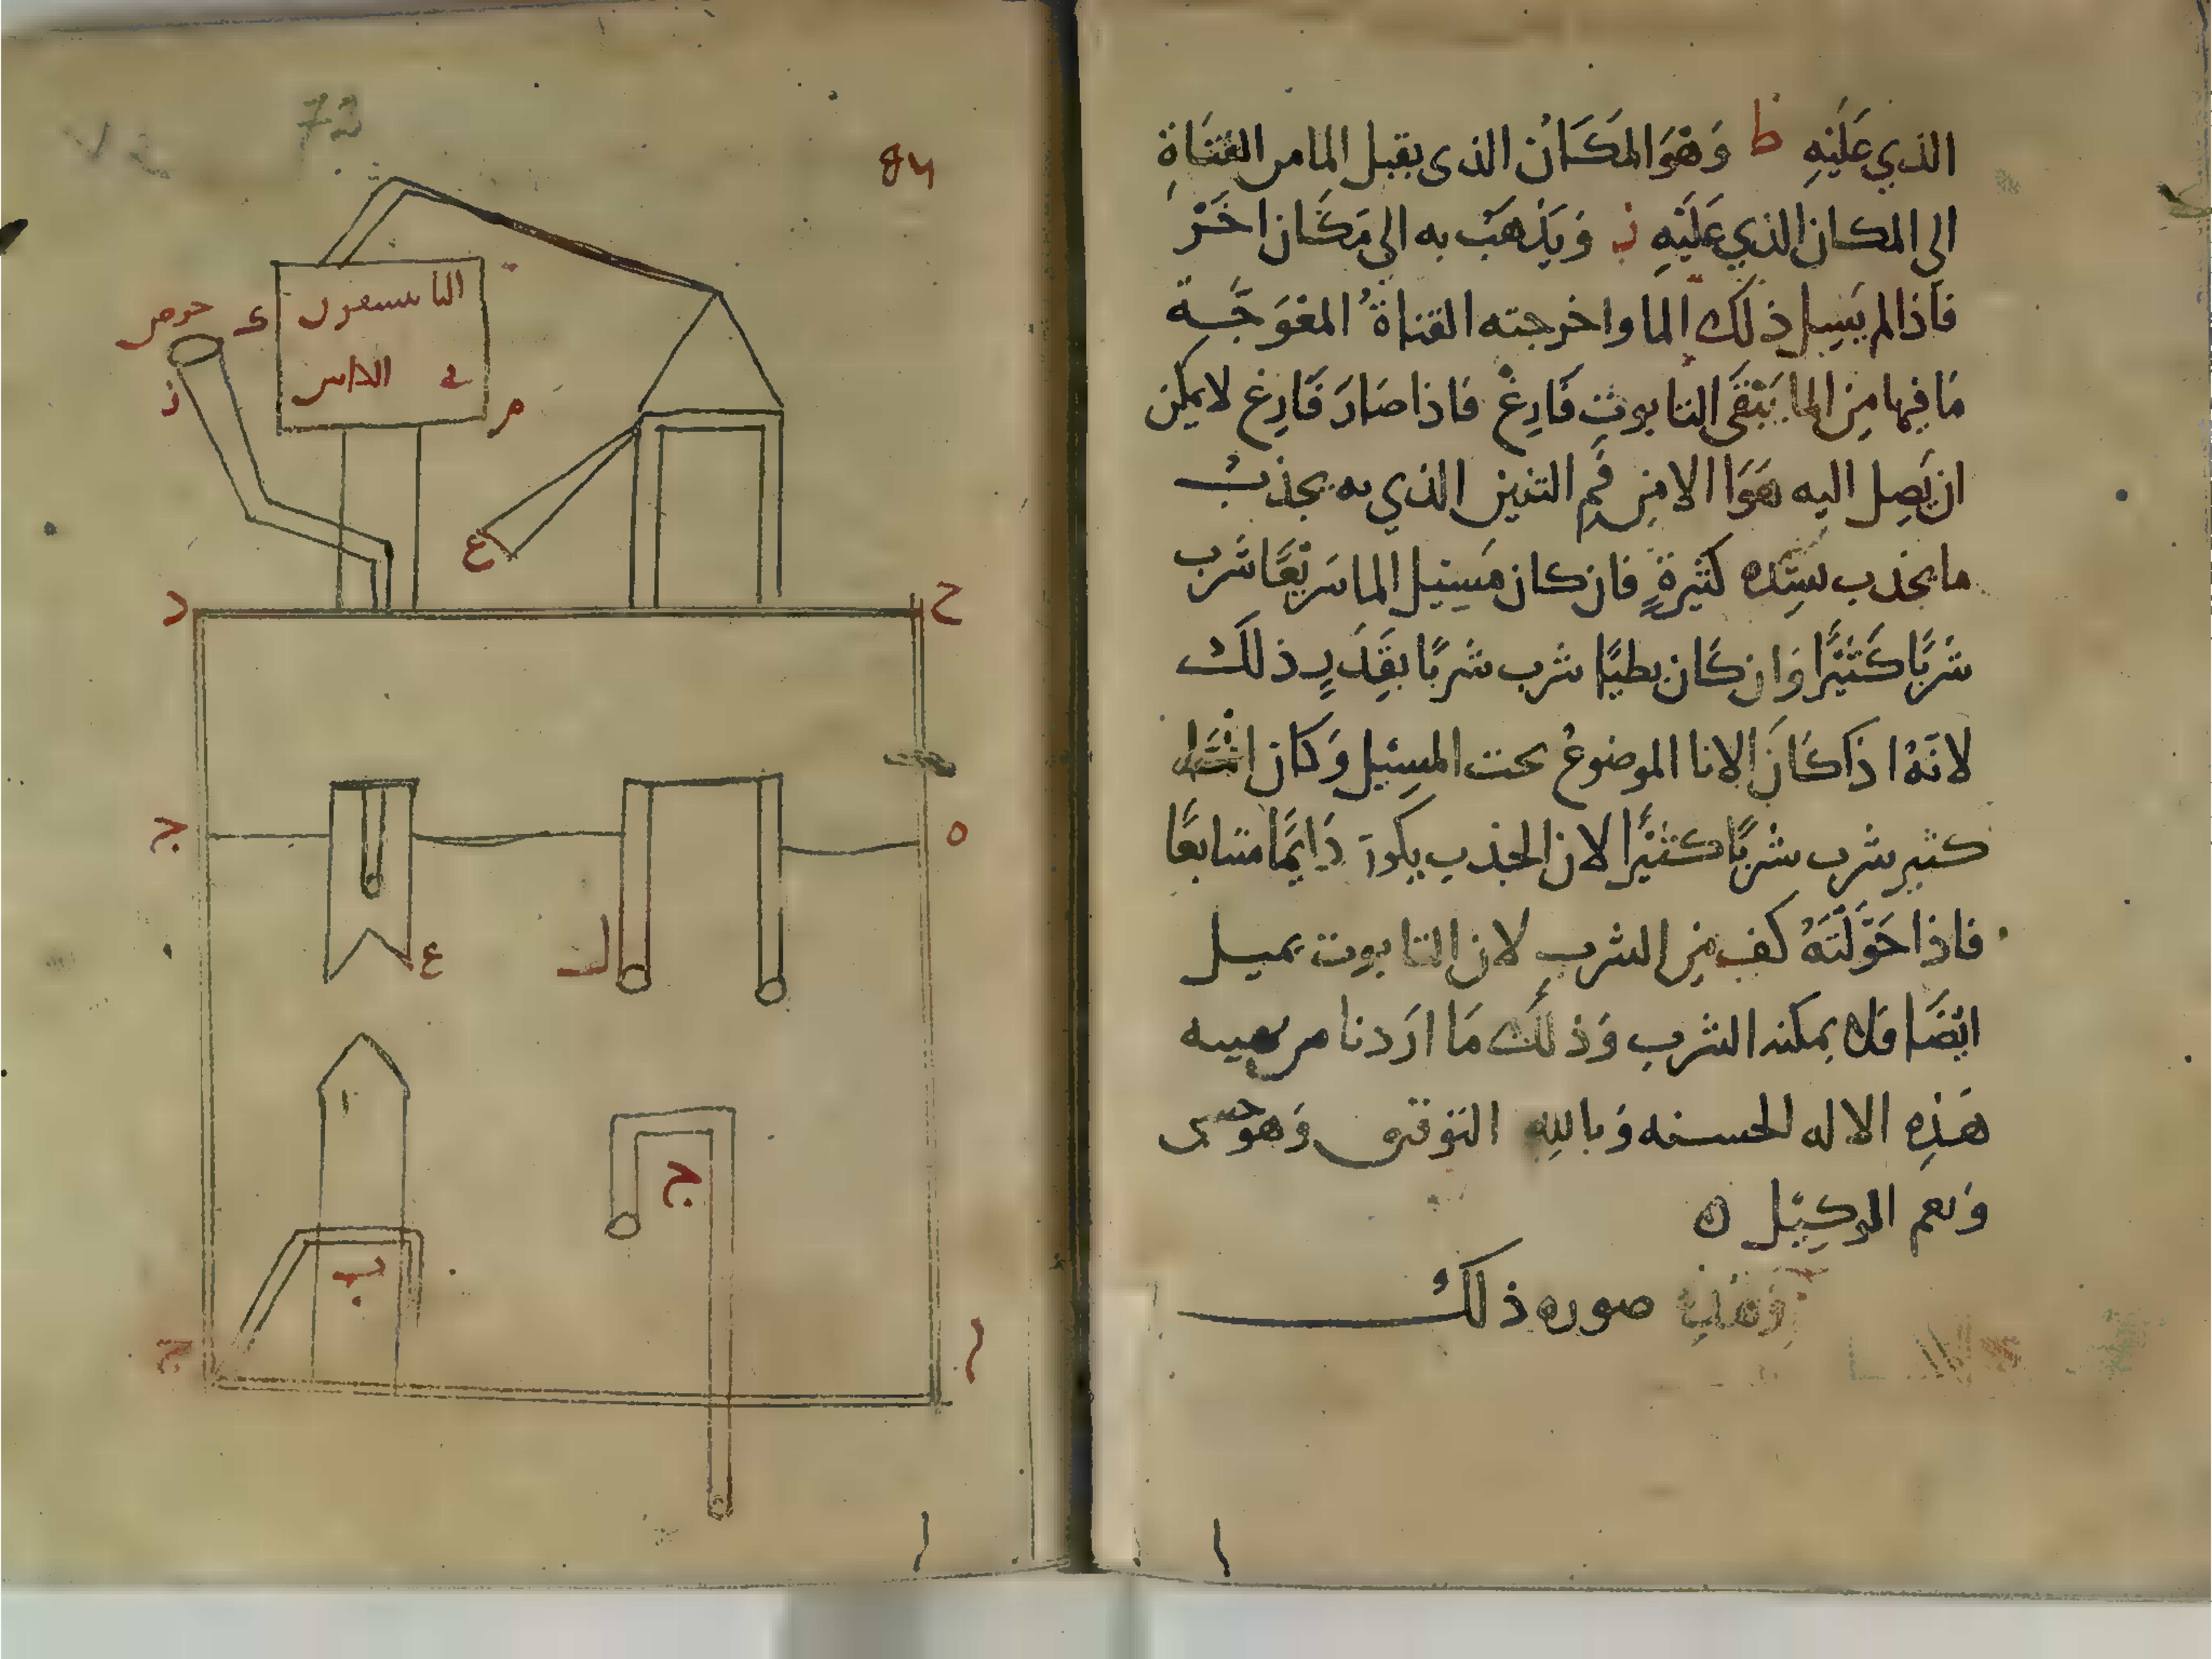 الذي عَلَيْهِ ط وَهْوَ المَكَانْ الذى يقبل الما من القَنَاةِ
الى المكان الذي عَلَيْهِ ز وَيَذْهَبْ به الى مَكَان اخَرْ
فَاذا لم يَسِيل ذلكَ الما واخرجته القناةُ المعْوَجَّة
مَا فيها مِنْ الما يَبْقَى التابوت فَارِغْ فاذا صَارَ فَارِغ لا يمكن
ان يَصِل اليه هَوَا الا مِنْ فَمِ التنين الذي به يجذبْ
ما يجذب بشِدَّه كثيرةٍ فان كان مَسِيْيل الما سَرِيْعًا شَرب
شربًا كَثيْرًا وَان كَان بطيًا شرب شربًا بقَدَرِ ذلكَ
لانَهْ اذَا كَانَ الانا الموضوعْ تحت المسِيْيل وَكان
كثير شرب شربًا كثيْرًا لان الجذب يكون دَايمًا متتابعًا
فاذا حَوَّلَتَهُ كف مِن الشربِ لان التابوت يميل
ايْضًا فلا يمكنه الشرب وَذلكَ مَا ارَدنا من
هَذِهِ الاله الحسنه وَباللهِ التوفيق وَهو حسبى
وَنعم الوكِيْل ه
وَهَذِهِ صوره ذلكْ
72
84
حوض
ى
ز
م
ع
د
ح
ج
ه
ع
ك
ج
ب